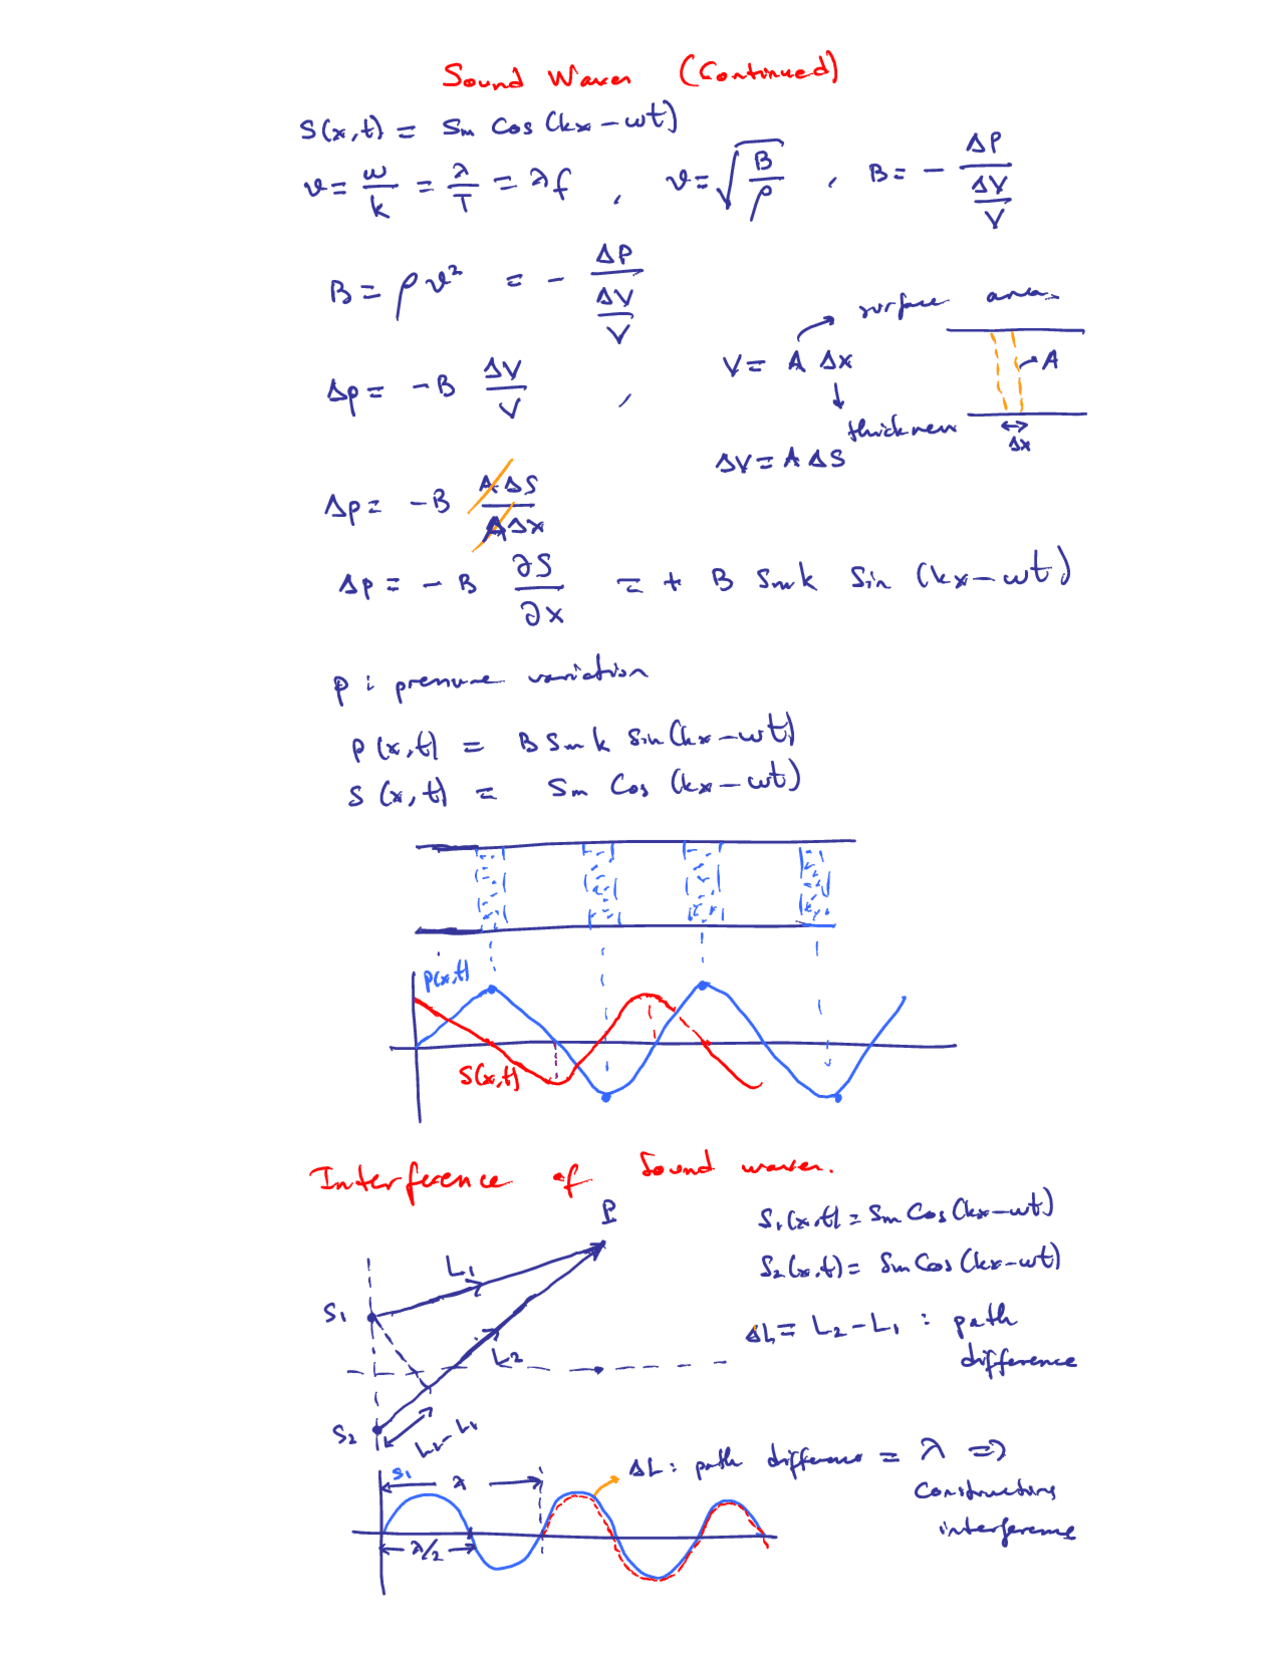 Sound Waves (Continued)
S(x,t) = Sm Cos (kx - ωt)
v = ω/k = λ/T = λf , v = √(B/ρ) , B = - ΔP/(ΔV/V)
B = ρv² = - ΔP/(ΔV/V)
surface area
V = A Δx
A
Δp = -B ΔV/V ,
thickness
Δx
ΔV = A ΔS
Δp = -B AΔS/AΔx
Δp = - B ∂S/∂x = + B Smk Sin (kx - ωt)
P : pressure variation
P(x,t) = B Sm k Sin(kx - ωt)
S(x,t) = Sm Cos (kx - ωt)
P(x,t)
S(x,t)
Interference of Sound waves.
P
S1(x,t) = Sm Cos(kx - ωt)
L1
S2(x,t) = Sm Cos (kx - ωt)
S1
ΔL = L2 - L1 : path
difference
L2
S2
L2 - L1
ΔL : path difference = λ ⇒
Constructive
interference
S1
λ
λ/2